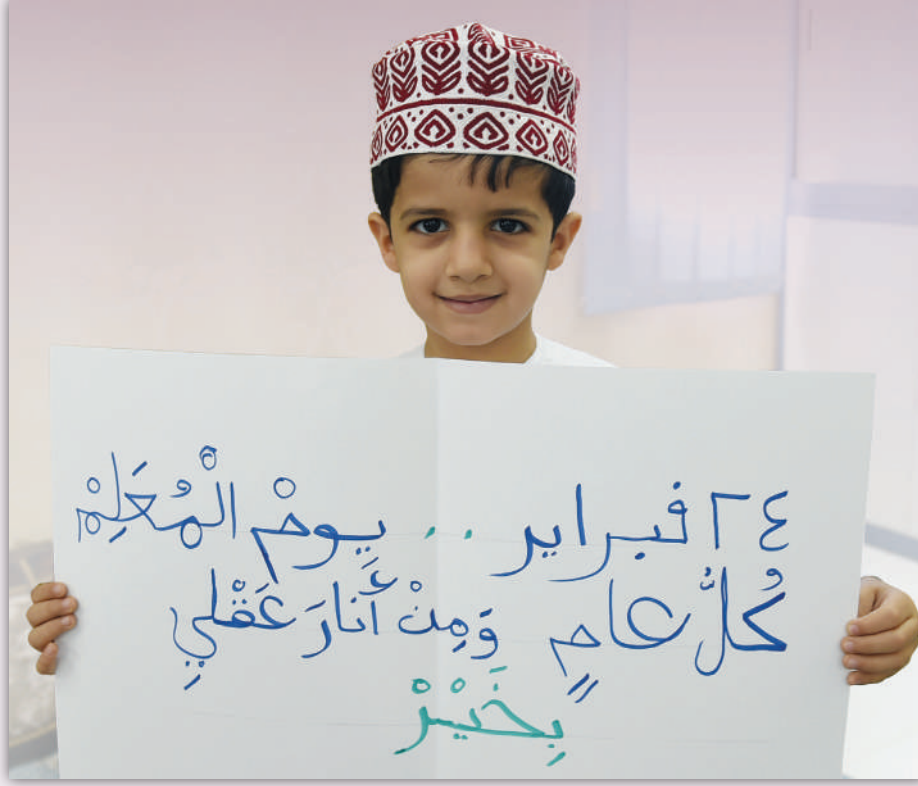 ٢٤ فبراير .. يومْ الْمُعَلِمْ
كُلُّ عامٍ وَمِنْ أَنارَ عَقْلِي
بِخَيْرْ